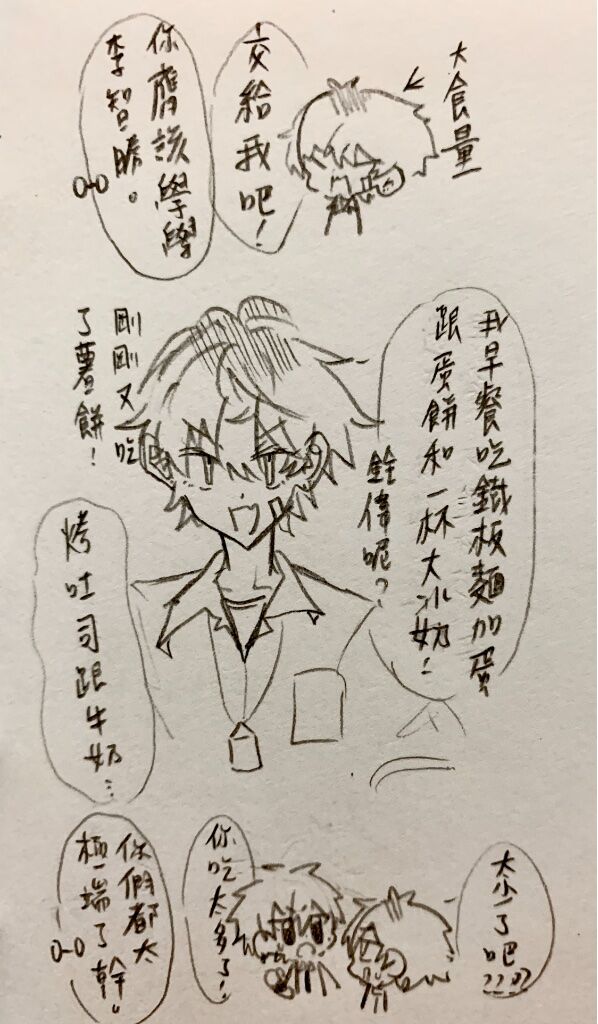 大食量
交給我吧！
你應該學學
李智瞻。
我早餐吃鐵板麵加蛋
跟蛋餅和一杯大冰奶！
銓偉呢？
剛剛又吃
了薯餅！
烤吐司跟牛奶…
太少了吧???
你吃太多了！
你們都太
極端了幹。